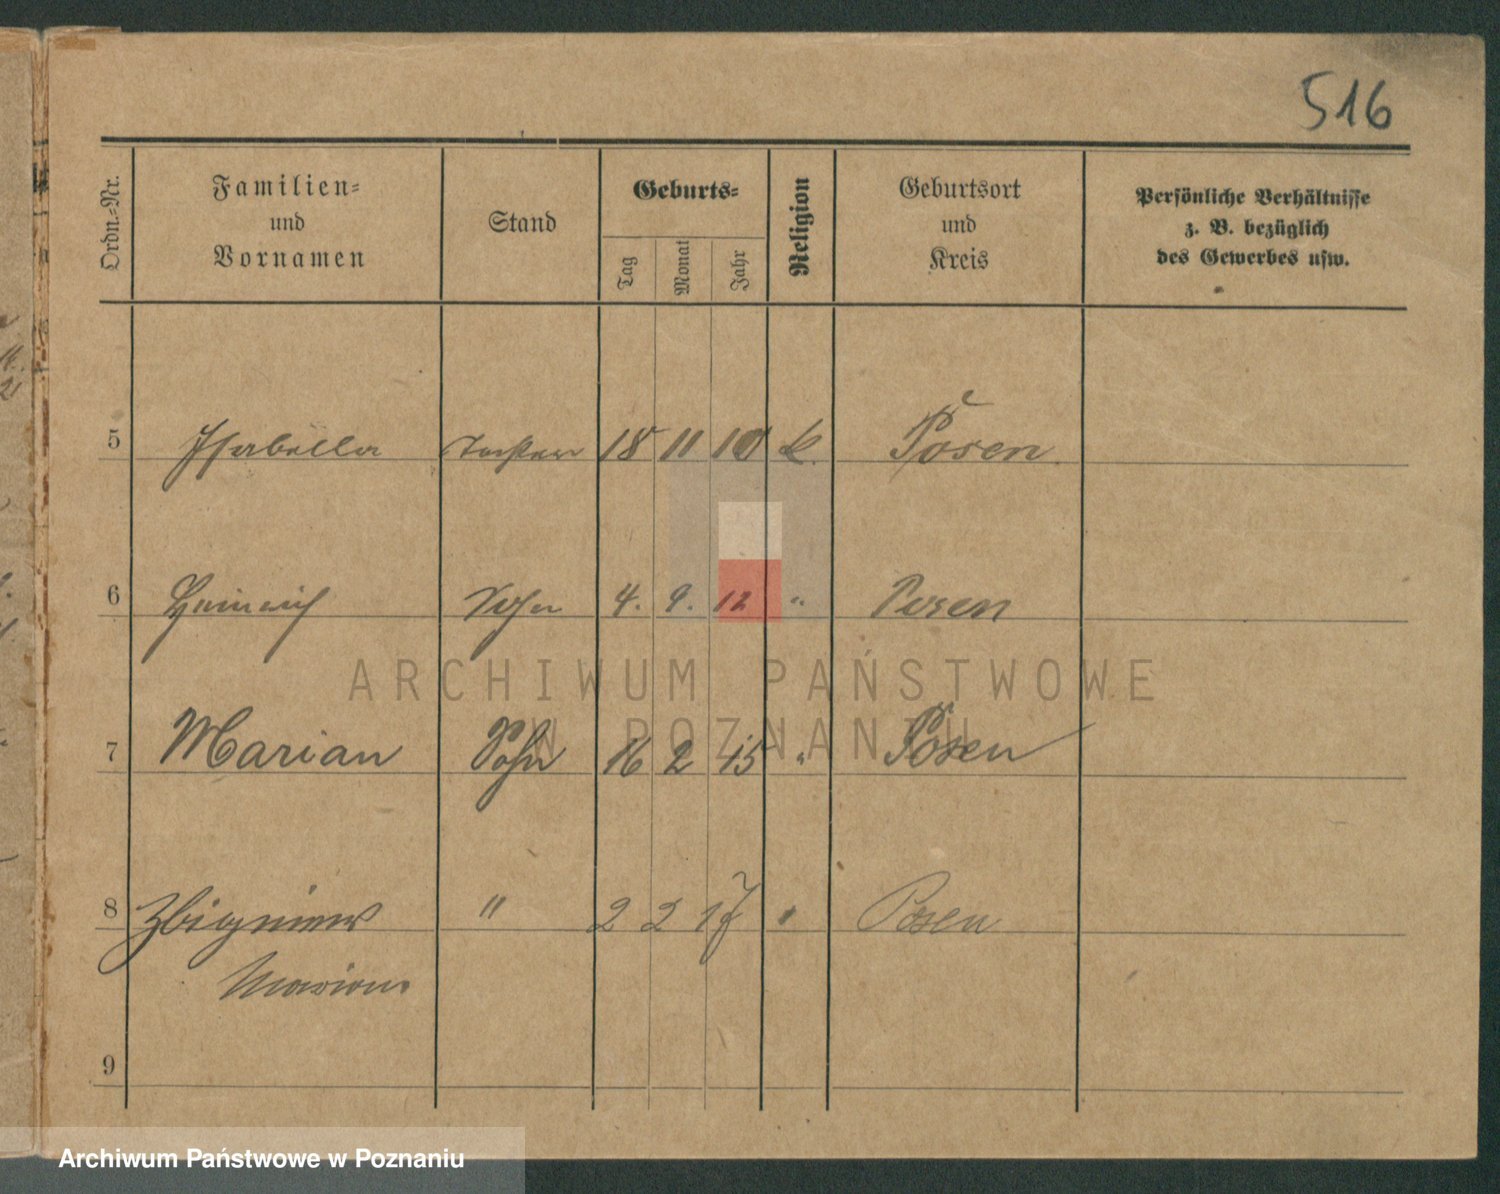 516
Ordn.-Nr.
Familien-
und
Vornamen
Stand
Geburts-
Tag
Monat
Jahr
Religion
Geburtsort
und
Kreis
Persönliche Verhältnisse
z. B. bezüglich
des Gewerbes usw.
5 Isabella Tochter 18 11 10 k. Posen
6 Heinrich Sohn 4. 9. 12 " Posen
7 Marian Sohn 16 2 15 " Posen
8 Zbigniew " 2 2 17 " Posen
Marian
9
ARCHIWUM PAŃSTWOWE
W POZNANIU
Archiwum Państwowe w Poznaniu